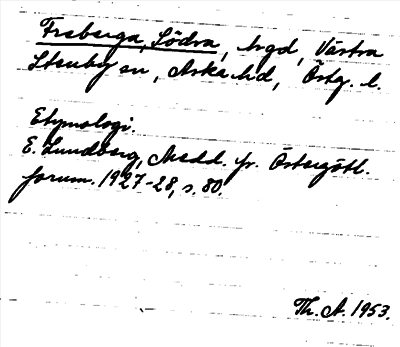 Freberga, Södra, hrgd, Västra
Stenby sn, Aska hd, Östg. l.
Etymologi.
E. Lundberg, Medd. fr. Östergötl.
fornm. 1927-28, s. 80.
Th. A. 1953.